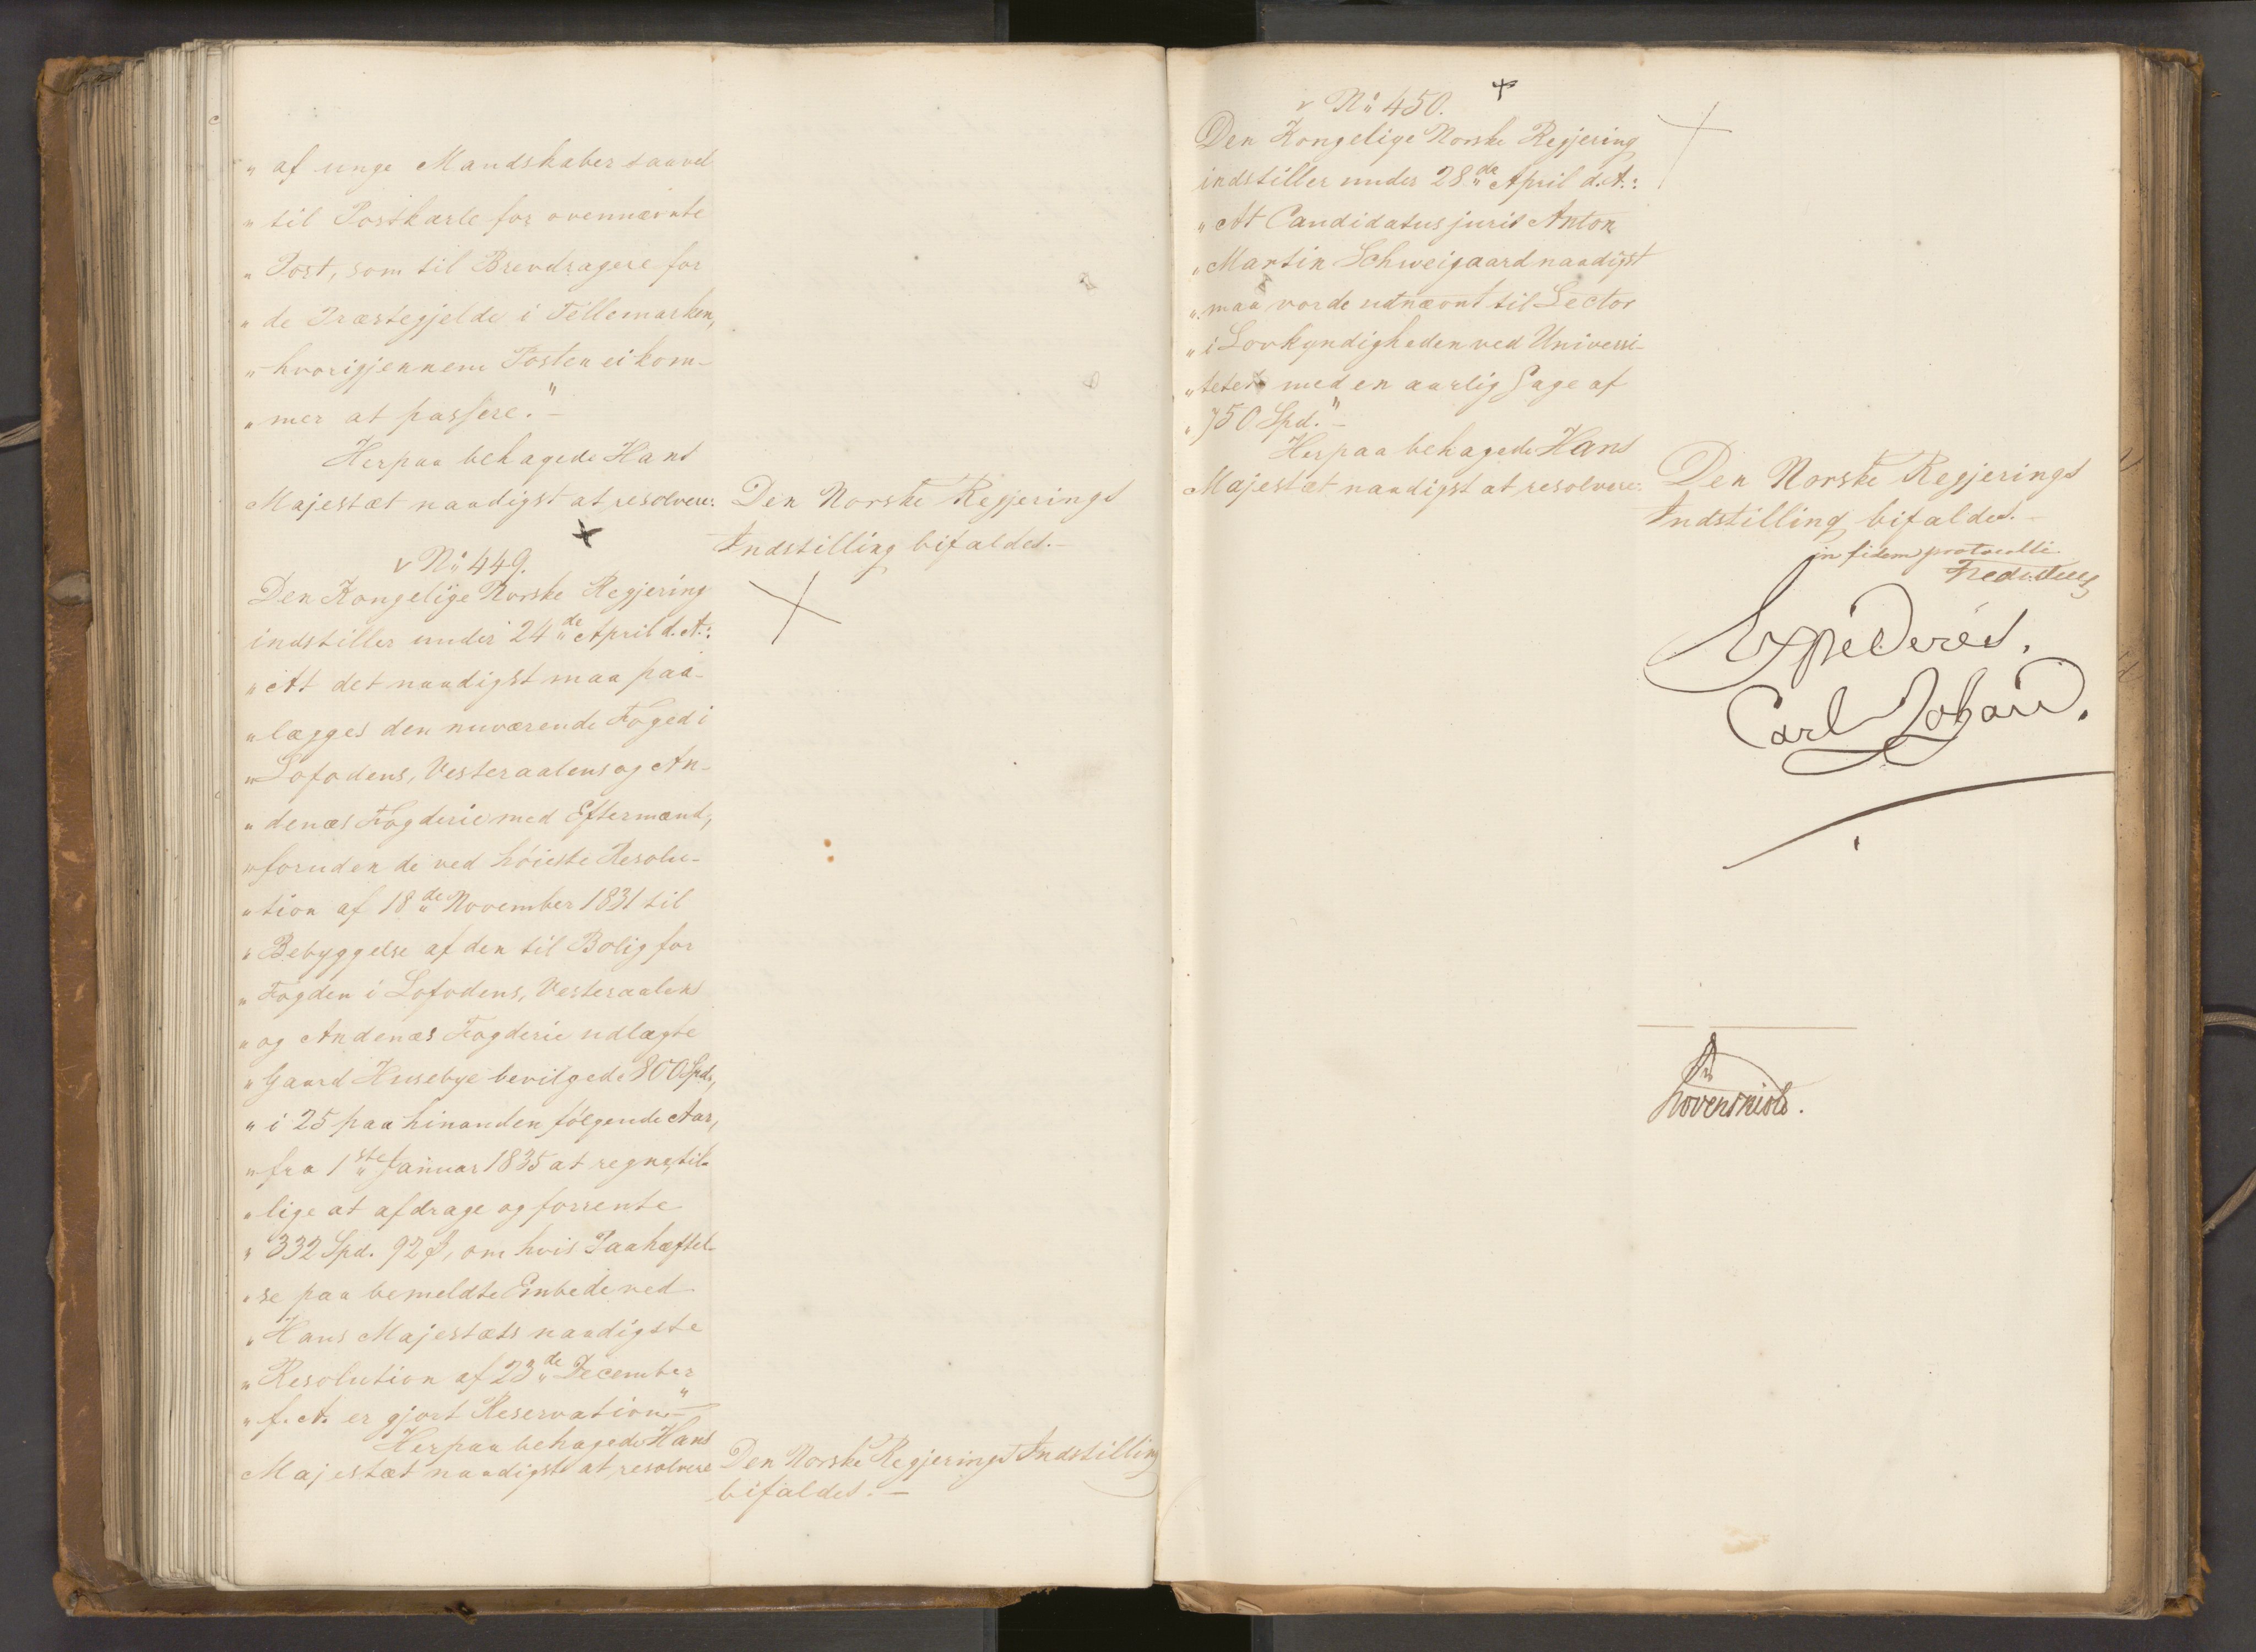 „ af unge Mandskaber saavel
„ til Postkarle for ovennævnte
„ Post, som til Brevdragere for
„ de Præstegjelde i Tellemarken,
„ hvorigjennem Posten ei kom-
„ mer at passere." –
Herpaa behagede Hans
Majestæt naadigst at resolvere:
Den Norske Regjerings
Indstilling bifaldes. –
v No 449.
Den Kongelige Norske Regjering
indstiller under 24de April d. A.:
„ At det naadigst maa paa-
„ lægges den nuværende Foged i
„ Lofodens, Vesteraalens og An-
„ denæs Fogderie med Eftermænd,
„ foruden de ved höieste Resolu-
„ tion af 18de November 1831 til
„ Bebyggelse af den til Bolig for
„ Fogden i Lofodens, Vesteraalens
„ og Andenæs Fogderie udlagte
„ Gaard Husebye bevilgede 800 Spd.,
„ i 25 paa hinanden fölgende Aar,
„ fra 1ste Januar 1835 at regne, til-
„ lige at afdrage og forrente
„ 332 Spd. 92 ß, om hvis Paahæftel-
„ se paa bemeldte Embede ved
„ Hans Majestæts naadigste
„ Resolution af 23de December
„ f. A. er gjort Reservation." –
Herpaa behagede Hans
Majestæt naadigst at resolvere
Den Norske Regjerings Indstilling
bifaldes. –
v No 450.
Den Kongelige Norske Regjering
indstiller under 28de April d. A.:
„ At Candidatus juris Anton
„ Martin Schweigaard naadigst
„ maa vorde udnævnt til Lector
„ i Lovkyndigheden ved Universi-
„ tetet med en aarlig Gage af
„ 750 Spd." –
Herpaa behagede Hans
Majestæt naadigst at resolvere:
Den Norske Regjerings
Indstilling bifaldes. –
in fidem protocolli
Expederes.
Carl Johan.
Lövenskiold.